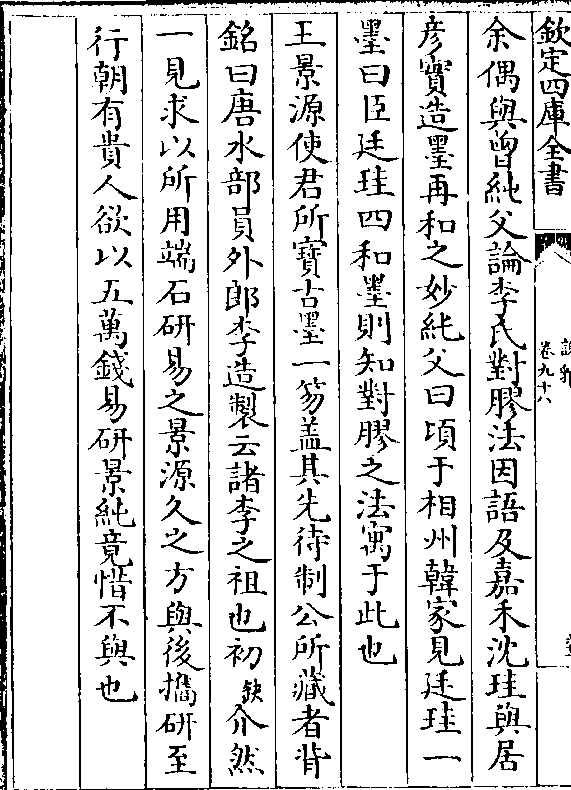 欽定四庫全書
說郛
卷九十八
余偶與曾純父論李氏對膠法因語及嘉禾沈珪與居
彦實造墨再和之妙純父曰頃于相州韓家見廷珪一
墨曰臣廷珪四和墨則知對膠之法寓于此也
王景源使君所寶古墨一笏盖其先待制公所藏者背
銘曰唐水部員外郎李造製云諸李之祖也初缺介然
一見求以所用端石研易之景源久之方與後攜研至
行朝有貴人欲以五萬錢易研景純竟惜不與也